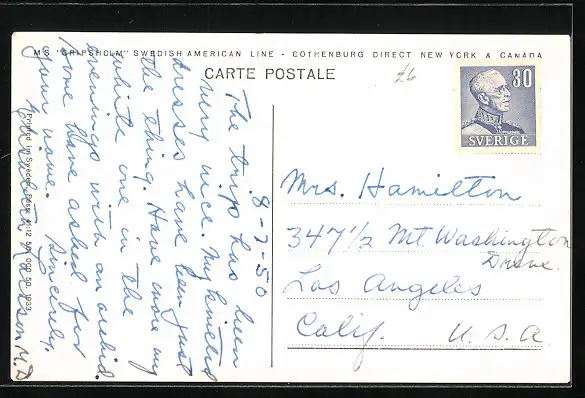 M.S. "GRIPSHOLM" SWEDISH AMERICAN LINE - GOTHENBURG DIRECT NEW YORK & CANADA
CARTE POSTALE
£6
30
SVERIGE
8-7-50
The trip has been
very nice. My knitted
dresses have been just
the thing. Have worn my
white one in the
evenings with an orchid.
Some have asked for
your name. Sincerely,
Elizabeth Larson M.D
Mrs. Hamilton
347 1/2 Mt. Washington
Drive.
Los Angeles
Calif. U. S. A.
Printed in Sweden